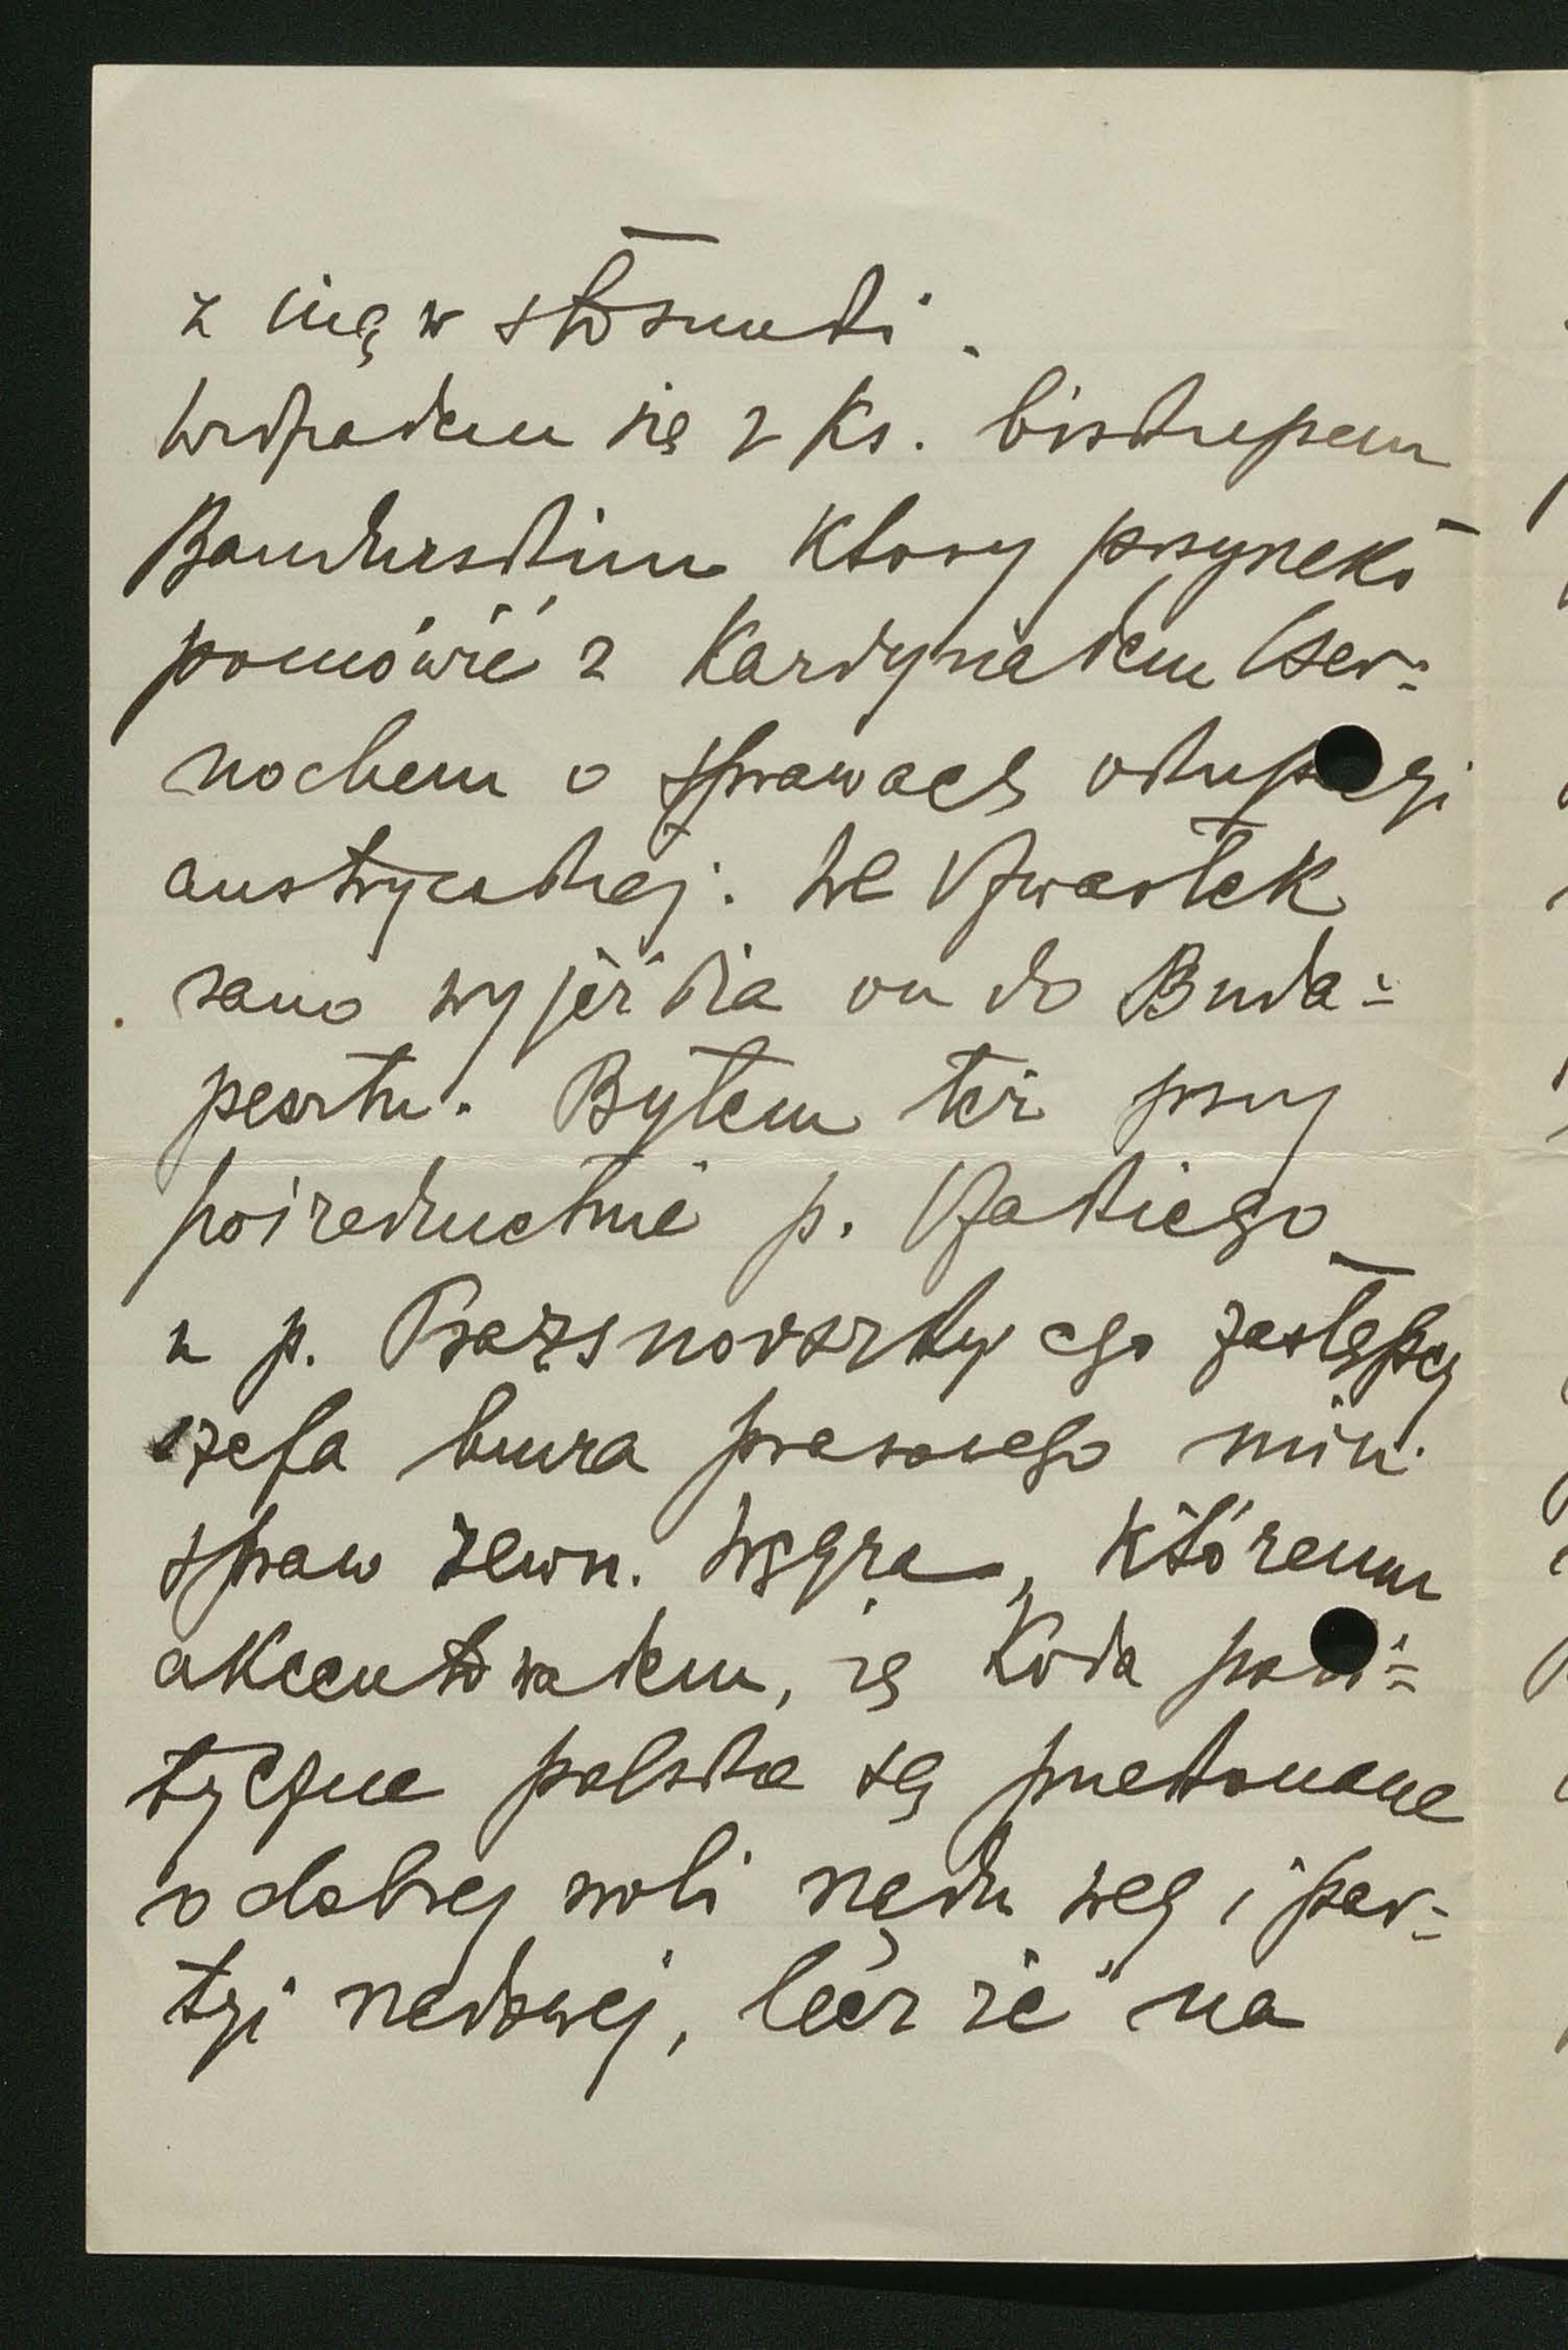 z nią w stosunki.
Widziałem się z Ks. biskupem
Bandurskim który przyrzekł
pomówić z Kardynałem Cser-
nochem o sprawach okupacyi
austryackiej. We Czwartek
rano wyjeżdża on do Buda-
pesztu. Byłem też przy
pośrednictwie p.
u p. zastępcy
szefa biura prasowego min.
spraw zewn. Węgra, któremu
akcentowałem, że Koła poli-
tyczne polskie są przekonane
o dobrej woli rządu węg i par-
tyi rządowej, lecz że na